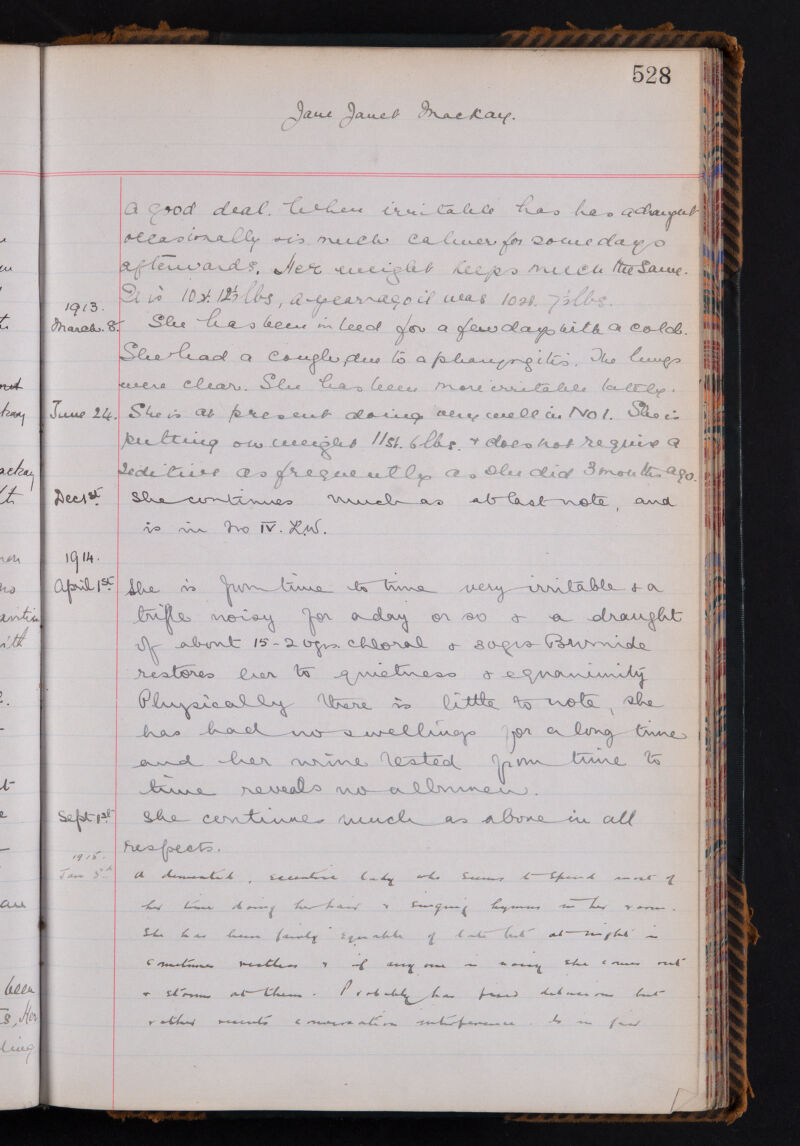 528
Jane Janet Mackay.
a good deal. When irritable has has a draught
occasionally & is much calmer for some days
afterwards. Her weight keeps much the same.
It is 10 st. 12½ lbs, a year ago it was 10 st. 7½ lbs.
1913.
March. 8. She has been in bed for a few days with a cold.
She had a cough, due to a pharyngitis. The lungs
were clear. She has been more irritable lately.
June 24. She is at present doing very well in No 1. She is
putting on weight 11 st. 6 lbs. & does not require a
Sedative as frequently as she did 3 months ago.
Dec 1st. She continues much as at last note, and
is in No IV. L.W.
1914.
April 1st. She is from time to time very irritable & a
trifle noisy for a day or so & a draught
of about 15-20 grs. chloral & 30 grs Bromide
restores her to quietness & equanimity
Physically there is little to note, she
has had no swellings for a long time
and her urine tested from time to
time reveals no albumen.
Sept 1st She continues much as above in all
respects.
1915.
Jan 5th A demented, secretive lady who seems to spend most of
her time doing her hair & singing hymns in her room.
She has been fairly equable of late but at night is
sometimes restless & if any one is noisy she comes out
& storms at them. Probably has fixed delusions but
rather resents conversation interference. Is in fair